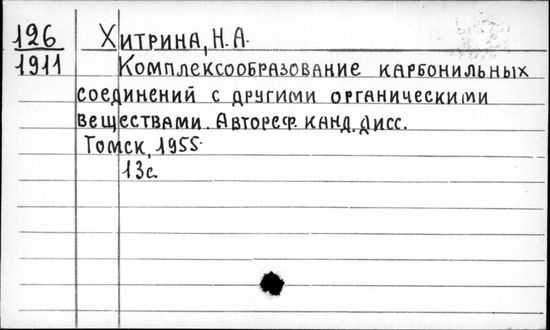 126 Хитрина, Н.А.
1911 Комплексообразование карбонильных
соединений с другими органическими
веществами. Автореф. канд. дисс.
Томск, 1955.
13с.